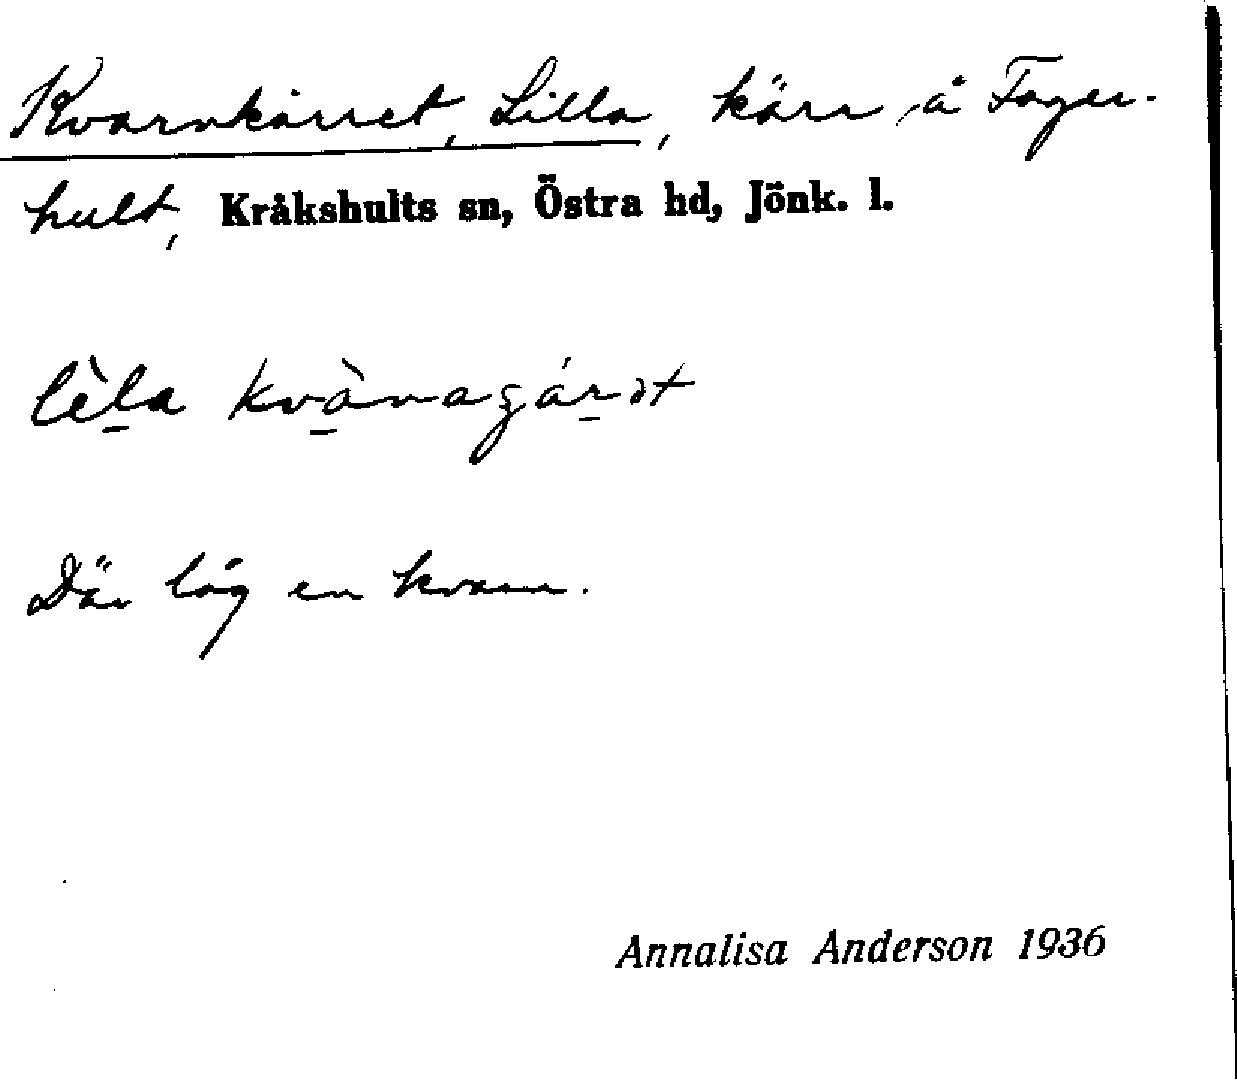 Kvarnkärret, Lilla, kärr å Fager-
hult, Kråkshults sn, Östra hd, Jönk. l.
lè̱la kvà̱nagár̠ət
Där låg en kvarn.
Annalisa Anderson 1936